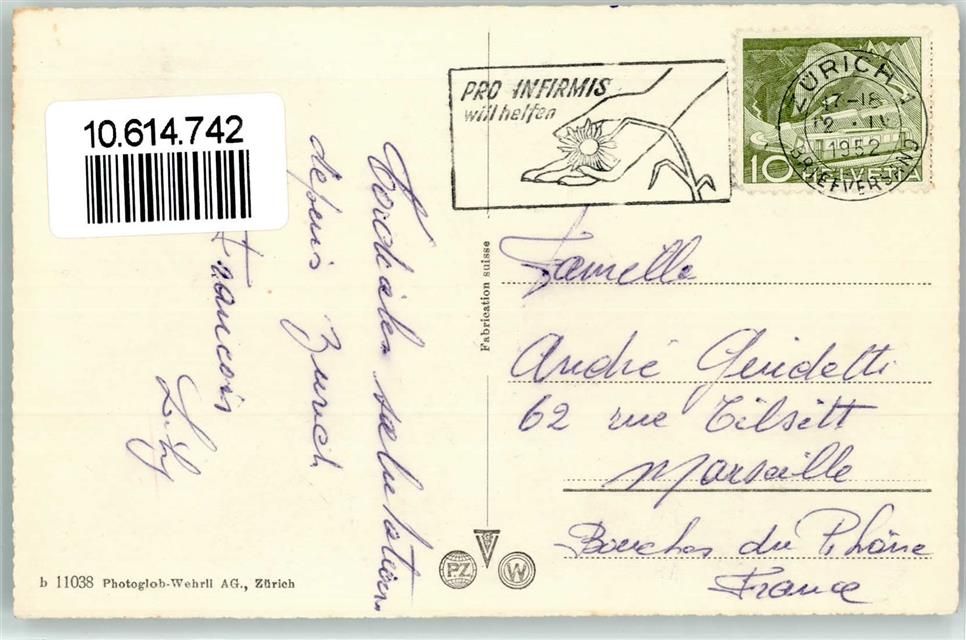 10.614.742
PRO INFIRMIS
will helfen
ZÜRICH 1
17-18
1952
BRIEFVERSAND
10 HELVETIA
Cordiales salutations
depuis Zurich
François
Famille
André Guidetti
62 rue Tilsitt
Marseille
Bouches du Rhône
France
Fabrication suisse
PZ W
b 11038 Photoglob-Wehrli AG., Zürich